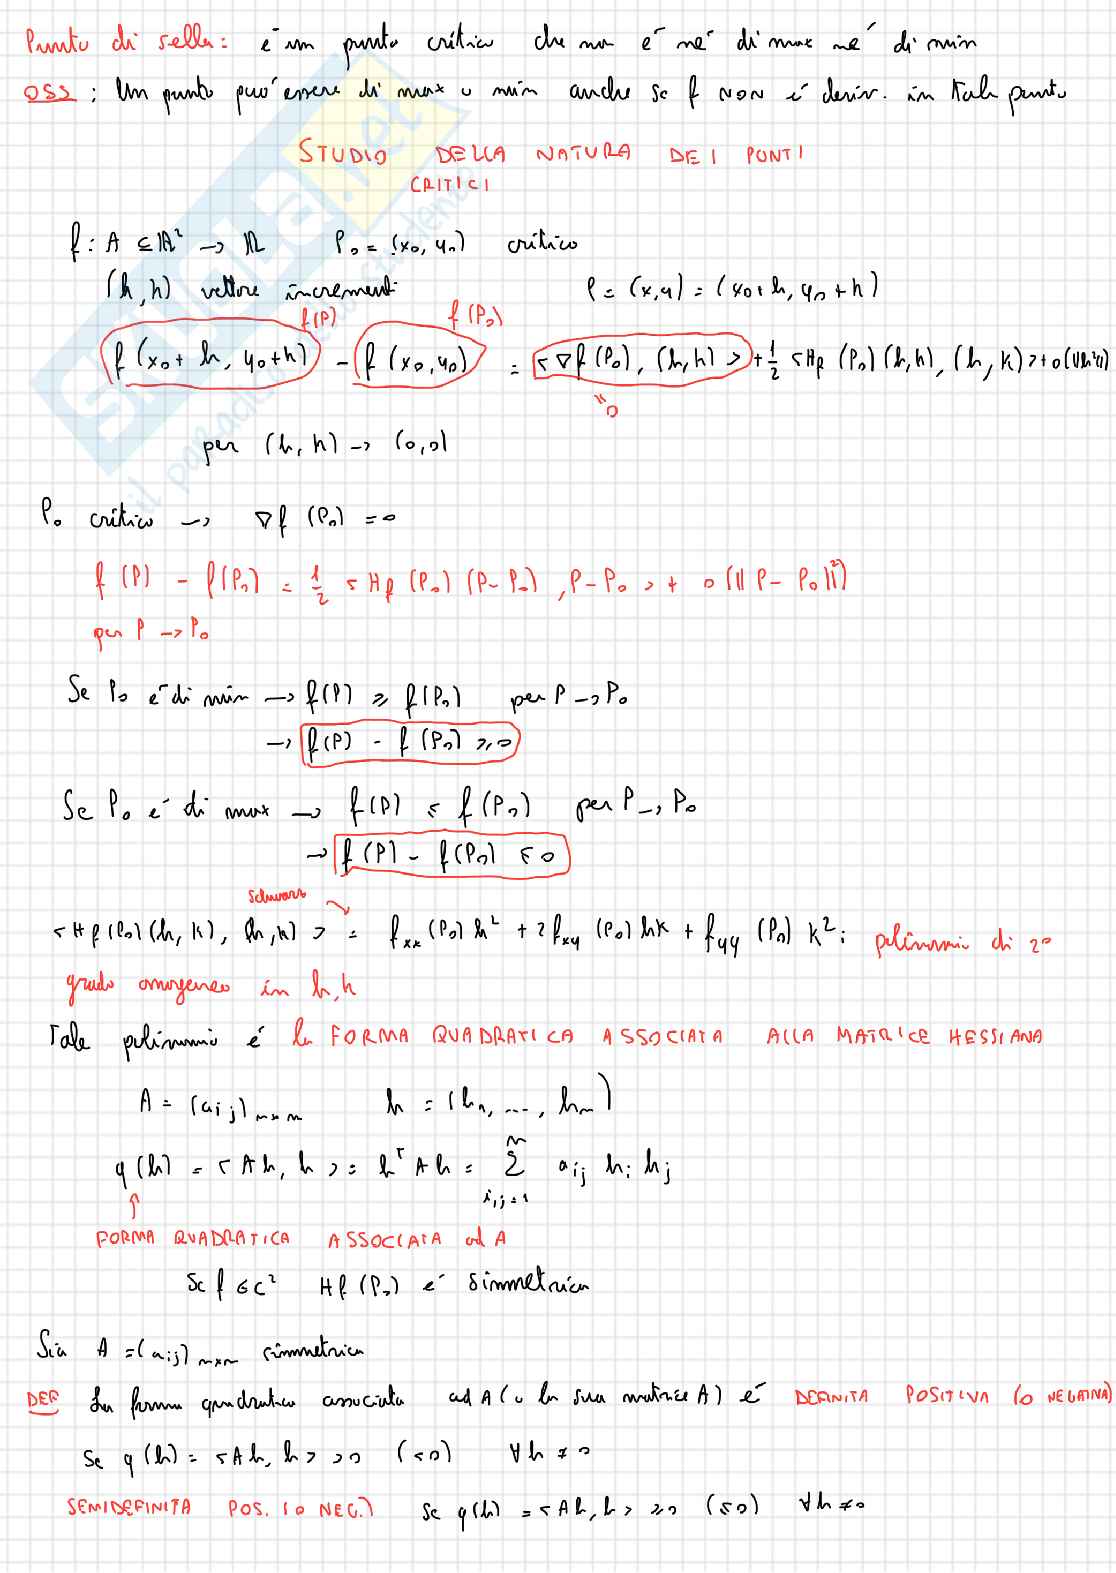 Punto di sella: é un punto critico che non é né di max né di min
OSS: Un punto puó essere di max o min anche se f NON é deriv. in tale punto
STUDIO DELLA NATURA DEI PUNTI
CRITICI
f: A ⊆ ℝ² → ℝ P₀ = (x₀, y₀) critico
(h, k) vettore incrementi P = (x, y) = (x₀ + h, y₀ + k)
f(P) f(P₀)
f(x₀ + h, y₀ + k) - f(x₀, y₀) = <∇f(P₀), (h, k)> + 1/2 <Hf(P₀)(h, k), (h, k)> + o(
= 0
per (h, k) → (0, 0)
P₀ critico → ∇f(P₀) = 0
f(P) - f(P₀) = 1/2 <Hf(P₀)(P - P₀), P - P₀> + o(||P - P₀||²)
per P → P₀
Se P₀ é di min → f(P) ≥ f(P₀) per P → P₀
→ f(P) - f(P₀) ≥ 0
Se P₀ é di max → f(P) ≤ f(P₀) per P → P₀
→ f(P) - f(P₀) ≤ 0
Schwarz
<Hf(P₀)(h, k), (h, k)> = fxx(P₀)h² + 2fxy(P₀)hk + fyy(P₀)k²: polinomio di 2°
grado omogeneo in h, k
Tale polinomio é la FORMA QUADRATICA ASSOCIATA ALLA MATRICE HESSIANA
A = (aij)n×n h = (h₁, ..., hn)
q(h) = <Ah, h> = hᵀAh = Σ aij hi hj
n
i,j=1
↑
FORMA QUADRATICA ASSOCIATA ad A
Se f ∈ C² Hf(P₀) é simmetrica
Sia A = (aij)n×n simmetrica
DEF La forma quadratica associata ad A (o la sua matrice A) é DEFINITA POSITIVA (o NEGATIVA)
Se q(h) = <Ah, h> > 0 (<0) ∀h ≠ 0
SEMIDEFINITA POS. (o NEG.) Se q(h) = <Ah, h> ≥ 0 (≤0) ∀h ≠ 0
SKUOLA.net
il paradiso dello studente